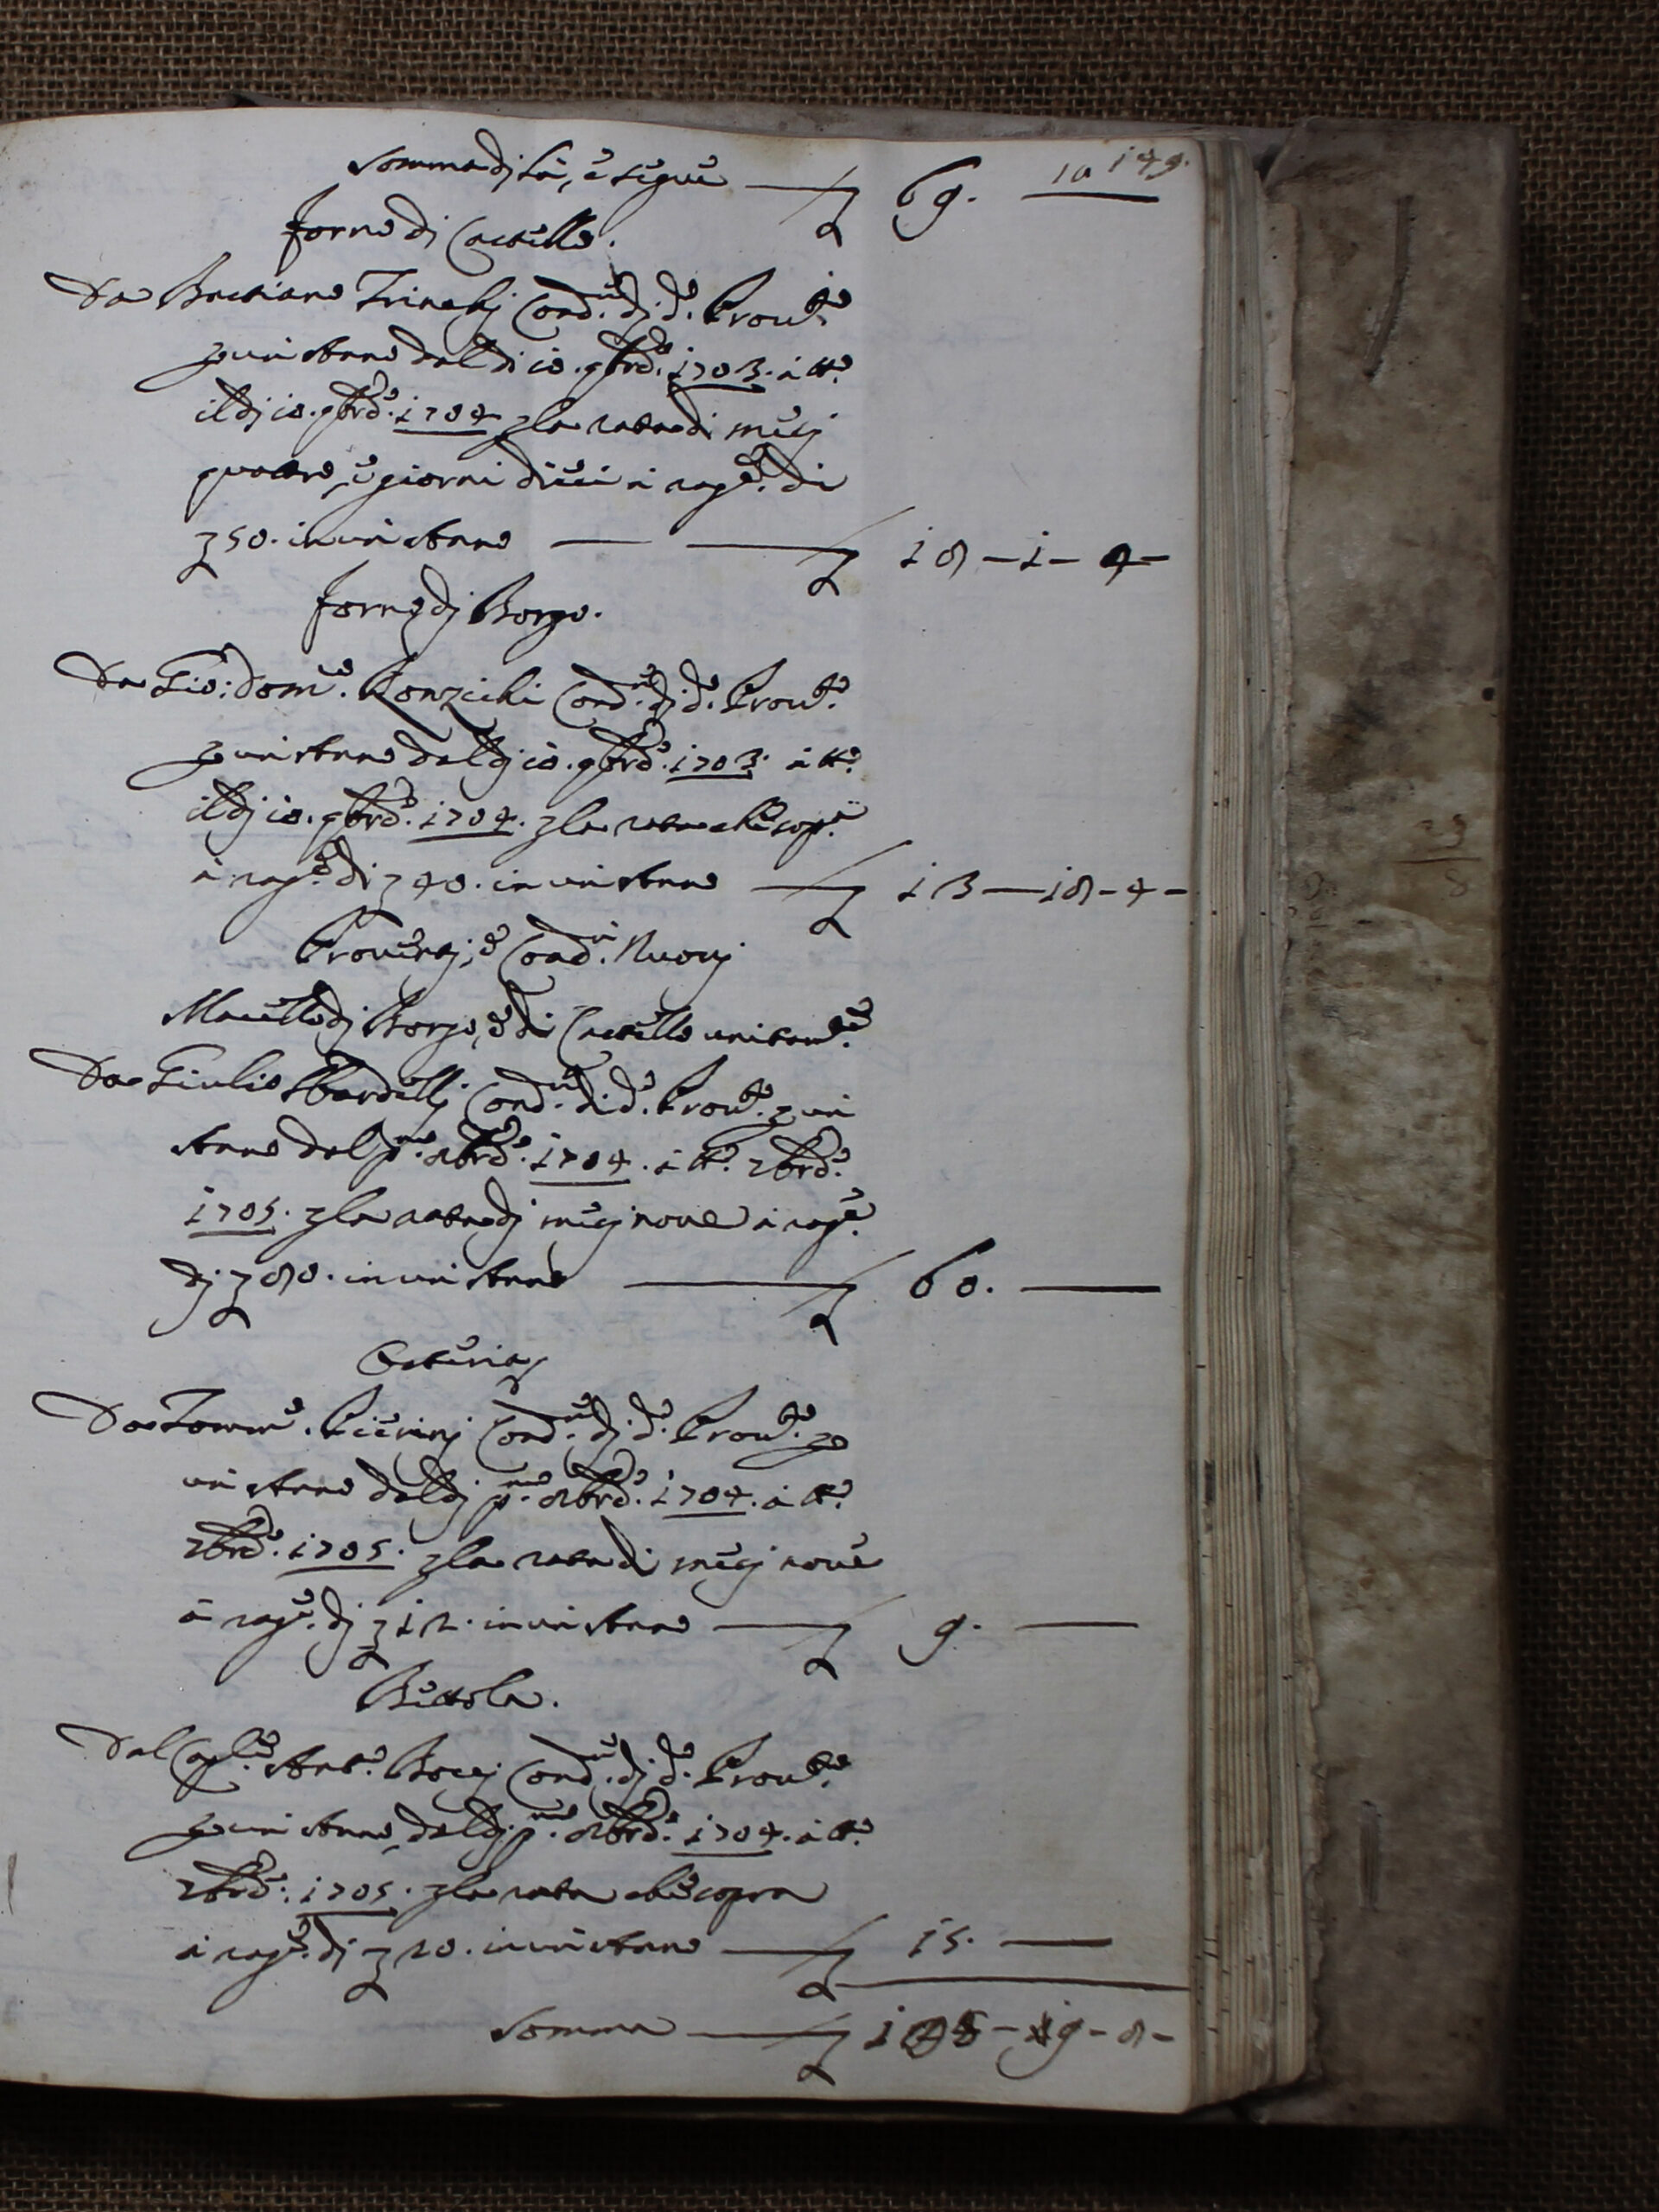 149.
Somma di là, e segue — z 69. 10
Forno di Castello.
Da Bastiano Trinchi Cond.re di d.o Prov.to
p un'Anno dal dì 10. 9bre. 1703. à tt.o
il dì 10. 9bre. 1704 p la rata di mesi
quattro, e giorni dieci à rag.e di
z 50. in un'Anno — z 18 - 1 - 4 -
Forno di Borgo.
Da Gio: Dom.co Ronzichi Cond.re di d.o Prov.to
p un'Anno dal dì 10. 9bre. 1703. à tt.o
il dì 10. 9bre. 1704. p la rata che sop.a
à rag.e di z 40. in un'Anno — z 13 — 18 - 4 -
Proventi, e Cond.ri Nuovi
Macello di Borgo, e di Castello unitam.te
Da Giulio Sbardelli Cond.re di d.o Prov.to p un
Anno dal p.mo 8bre. 1704. à tt.o 7bre.
1705. p la rata di mesi nove à rag.e
di z 80. in un'Anno — z 60. —
Osteria
Da Tomm.o Pierini Cond.re di d.o Prov.to p
un'Anno dal dì p.mo 8bre. 1704. à tt.o
7bre. 1705. p la rata di mesi nove
à rag.e di z 12. in un'Anno — z 9. —
Bettola.
Dal Cap.le Ant.o Bocci Cond.re di d.o Prov.to
p un'Anno, dal dì p.mo 8bre. 1704. à tt.o
7bre. 1705. p la rata che sopra
à rag.e di z 20. in un'Anno — z 15. —
Somma — z - 19 - 8 -